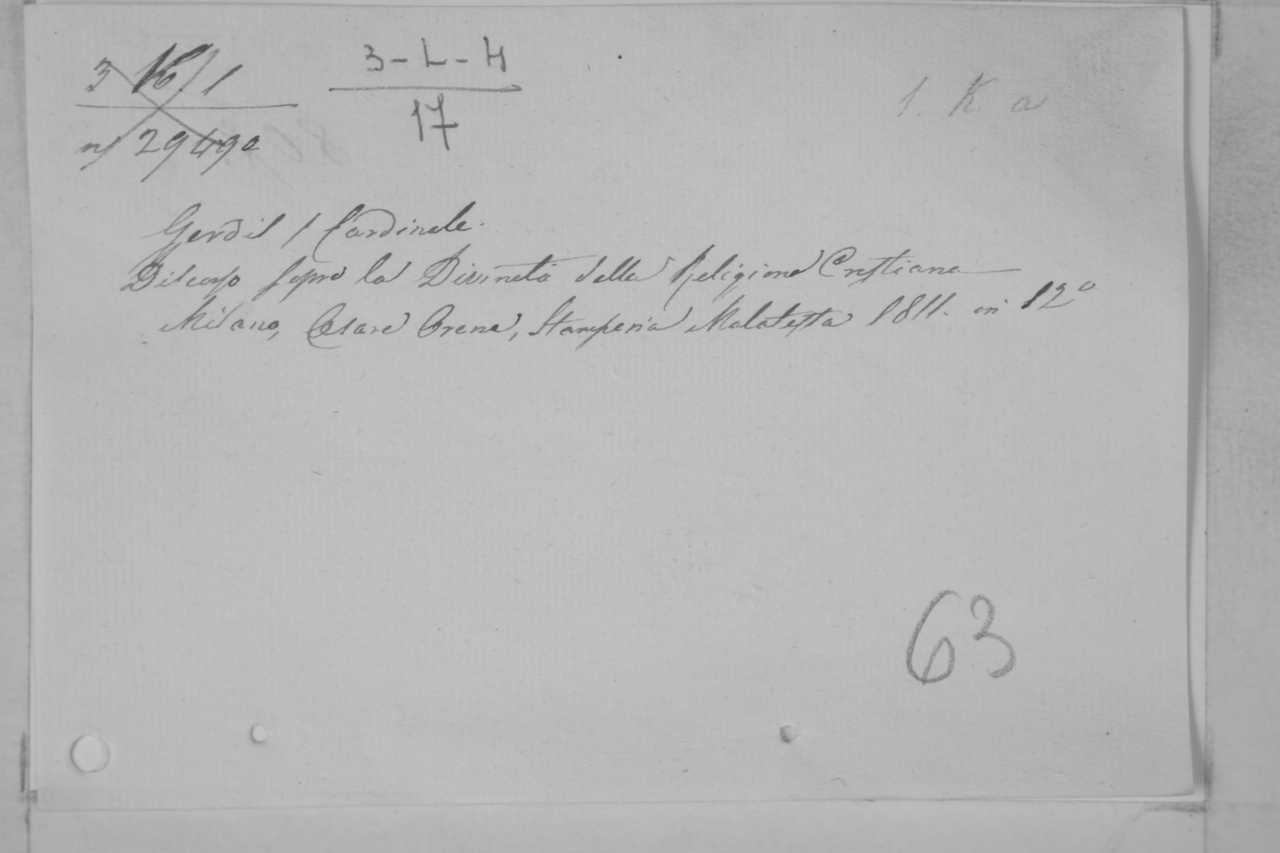 3 K / 1
n/ 29490
3-L-H
17
1. K a
Gerdil / Cardinale.
Discorso sopra la Divinità della Religione Cristiana
Milano, Cesare Orena, Stamperia Malatesta 1811. in 12º
63